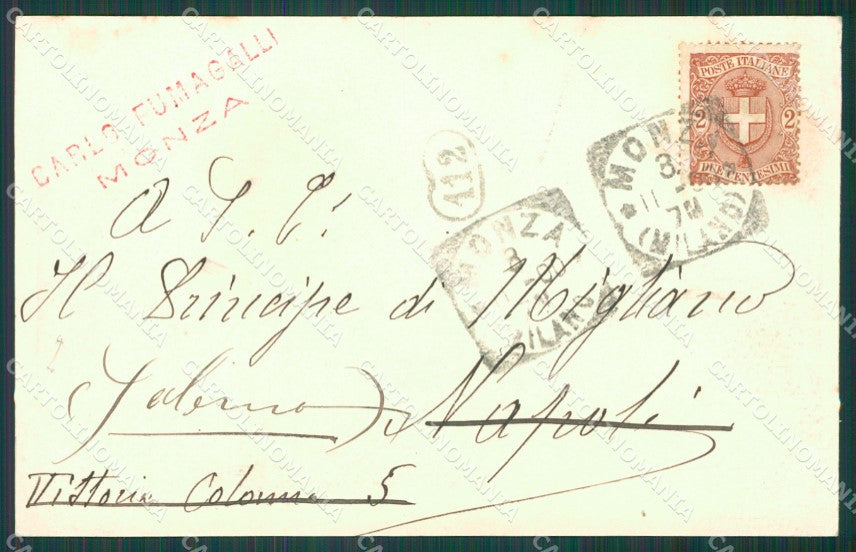 CARLO FUMAGALLI
MONZA
POSTE ITALIANE
2 2
DUE CENTESIMI
MONZA
(MILANO)
MONZA
MILANO
112
A S. E.
Il Principe di Migliano
Salerno Napoli
Vittoria Colonna 5
CARTOLINOMANIA